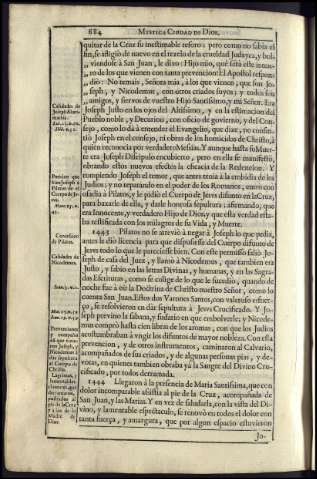 684 MYSTICA CIUDAD DE DIOS.
quitar de la Cruz su inestimable tesoro; pero como no sabia el
fin, se afligió de nuevo en el rezelo de la crueldad Judayca, y bol-
viendose à San Juan, le dixo: Hijo mio, què será este inten-
to de los que vienen con tanta prevencion? El Apostol respon-
diò: No temais, Señora mia, à los que vienen, que son Jo-
seph, y Nicodemus, con otros criados suyos; y todos son
amigos, y siervos de vuestro Hijo Santissimo, y mi Señor. Era
Joseph Justo en los ojos del Altissimo, y en la estimacion del
Pueblo noble, y Decurion, con oficio de govierno, y del Con-
sejo, como lo dà à entender el Evangelio, que dize, no consin-
tiò Joseph en el consejo, ni obras de los homicidas de Christo, à
quien reconocia por verdadero Messias. Y aunque hasta su Muer-
te era Joseph Discipulo encubierto, pero en ella se manifestò,
obrando estos nuevos efectos la eficacia de la Redencion. Y
rompiendo Joseph el temor, que antes tenia à la embidia de los
Judios; y no reparando en el poder de los Romanos, entrò con
osadia à Pilatos, y le pidiò el Cuerpo de Jesus difunto en la Cruz,
para baxarle de ella, y darle honrosa sepultura; afirmando, que
era Innocente, y verdadero Hijo de Dios, y que esta verdad esta-
ba testificada con los milagros de su Vida, y Muerte.
1443 Pilatos no se atreviò à negar à Joseph lo que pedia,
antes le diò licencia para que dispusiesse del Cuerpo difunto de
Jesus todo lo que le pareciesse bien. Con este permisso saliò Jo-
seph de casa del Juez, y llamò à Nicodemus, que tambien era
Justo, y sabio en las letras Divinas, y humanas, y en las Sagra-
das Escrituras, como se colige de lo que le sucediò, quando de
noche fue à oìr la Doctrina de Christo nuestro Señor, como lo
cuenta San Juan. Estos dos Varones Santos, con valeroso esfuer-
ço, se resolvieron en dar sepultura à Jesus Crucificado. Y Jo-
seph previno la sabana, y sudario en que embolverle; y Nicode-
mus comprò hasta cien libras de las aromas, con que los Judios
acostumbraban à vngir los difuntos de mayor nobleza. Con esta
prevencion, y de otros instrumentos, caminaron al Calvario,
acompañados de sus criados, y de algunas personas pias, y de-
votas, en quienes tambien obraba yà la Sangre del Divino Cru-
cificado, por todos derramada.
1444 Llegaron à la presencia de Maria Santissima, que con
dolor incomparable assistia al pie de la Cruz, acompañada de
San Juan, y las Marias. Y en vez de saludarla, con la vista del Di-
vino, y lamentable espectaculo, se renovò en todos el dolor con
tanta fuerça, y amargura, que por algun espacio estuvieron
Jo-
Calidades de
Pidese que
Conversion
de Pilatos.
Calidades de
Nicodemus.